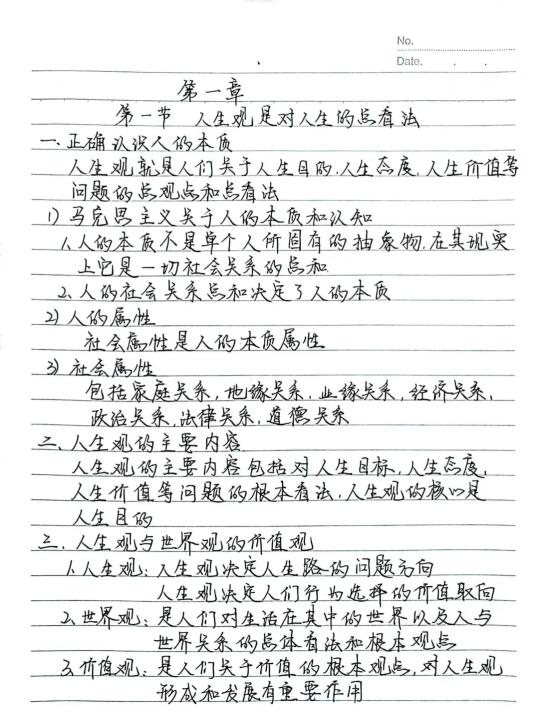 No.
Date.
第一章
第一节 人生观是对人生的总看法
一、正确认识人的本质
人生观就是人们关于人生目的、人生态度、人生价值等
问题的总观点和总看法
1) 马克思主义关于人的本质和认知
1、人的本质不是单个人所固有的抽象物,在其现实
上它是一切社会关系的总和
2、人的社会关系总和决定了人的本质
2) 人的属性
社会属性是人的本质属性
3) 社会属性
包括家庭关系,地缘关系,业缘关系,经济关系,
政治关系,法律关系,道德关系
二、人生观的主要内容
人生观的主要内容包括对人生目标,人生态度,
人生价值等问题的根本看法,人生观的核心是
人生目的
三、人生观与世界观的价值观
1、人生观:人生观决定人生路的问题方向
人生观决定人们行为选择的价值取向
2、世界观:是人们对生活在其中的世界以及人与
世界关系的总体看法和根本观点
3、价值观:是人们关于价值的根本观点,对人生观
形成和发展有重要作用